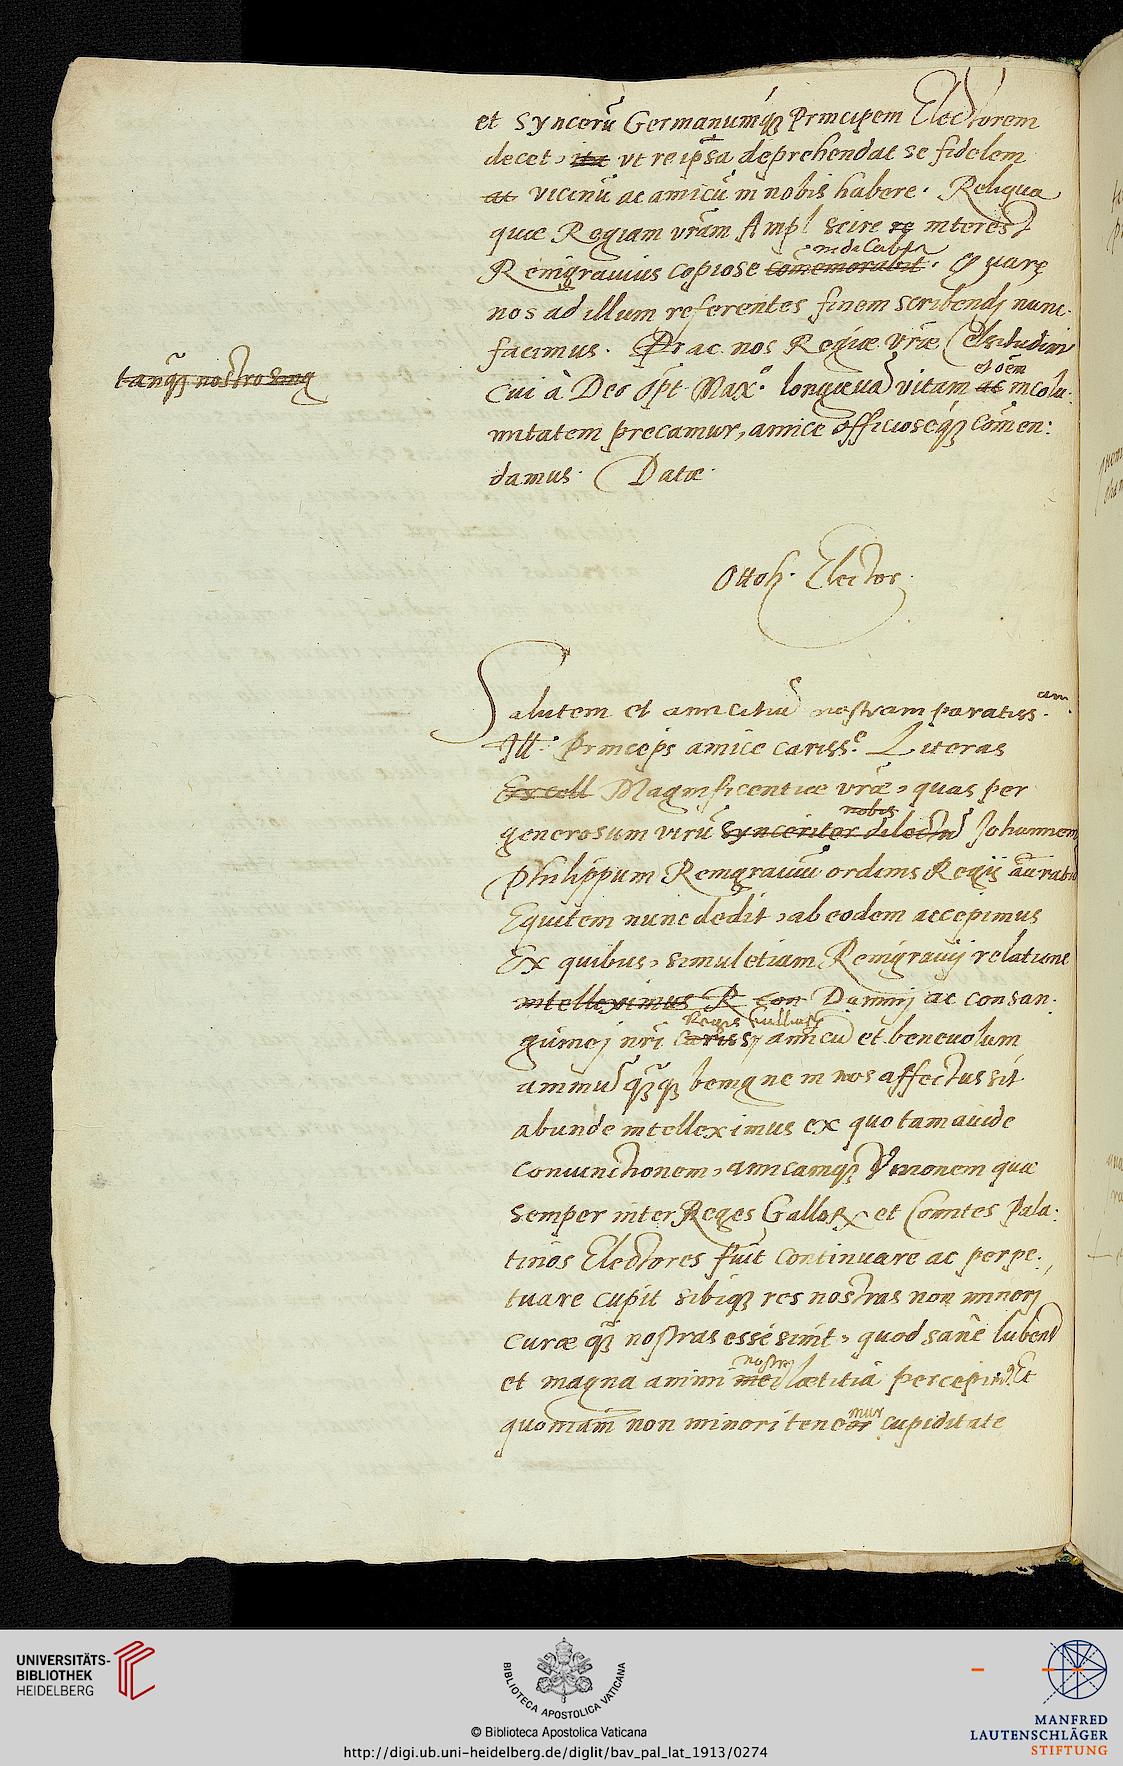 et Syncerū Germanumq́ꝫ Principem Electorem
decet, ita vt re ipsa deprehendat se fidelem
at vicinū ac amicū in nobis habere. Reliqua
quæ Regiam vr̄am Ampl scire re interest
indicabit
Reingrauius copiose com̄emorabit. Quare
nos ad illum referentes finem scribendj nunc
facimus. Dat ac nos Regiæ vr̄æ Celsitudini
tanq̄ꝫ nostro sing
et oēm
cui à Deo Opt Max° longæuā vitam ac incolu-
mitatem precamur, amice officioseq́ꝫ com̄en:
damus. Datæ.
Ottoh. Elector.
Salutem et amicitiā nostram paratiss.am
Ill. Princeps amice cariss.e Literas
Excell Magnificentiæ vr̄æ, quas per
nobis
generosum virū synceriter dilectū Johannem
Philippum Reingrauiū ordinis Regij auratū
Equitem nunc dedit, ab eodem accepimus
Ex quibus, simul etiam Reingrauij relatione
intelleximus R con Dominj ac consan-
Regis Galliarū
guinej nr̄i cariss.j amicū et beneuolum
animū q̄ꝫq́ꝫ benigne in nos affectus sit
abunde intelleximus ex quo tam auide
coniunctionem, amicamq́ꝫ Vnionem quæ
semper inter Reges Gallorꝝ et Comites Pala-
tinos Electores fuit continuare ac perpe-
tuare cupit sibiq́ꝫ res nostras non minorj
curæ q̄ꝫ nostras esse sinit, quod sanè lubens
nostrj
et magna animi mei lætitiā percepim9. Et
mur
quoniam non minori teneor cupiditate
UNIVERSITÄTS-
BIBLIOTHEK
HEIDELBERG
BIBLIOTECA APOSTOLICA VATICANA
© Biblioteca Apostolica Vaticana
http://digi.ub.uni-heidelberg.de/diglit/bav_pal_lat_1913/0274
MANFRED
LAUTENSCHLÄGER
STIFTUNG